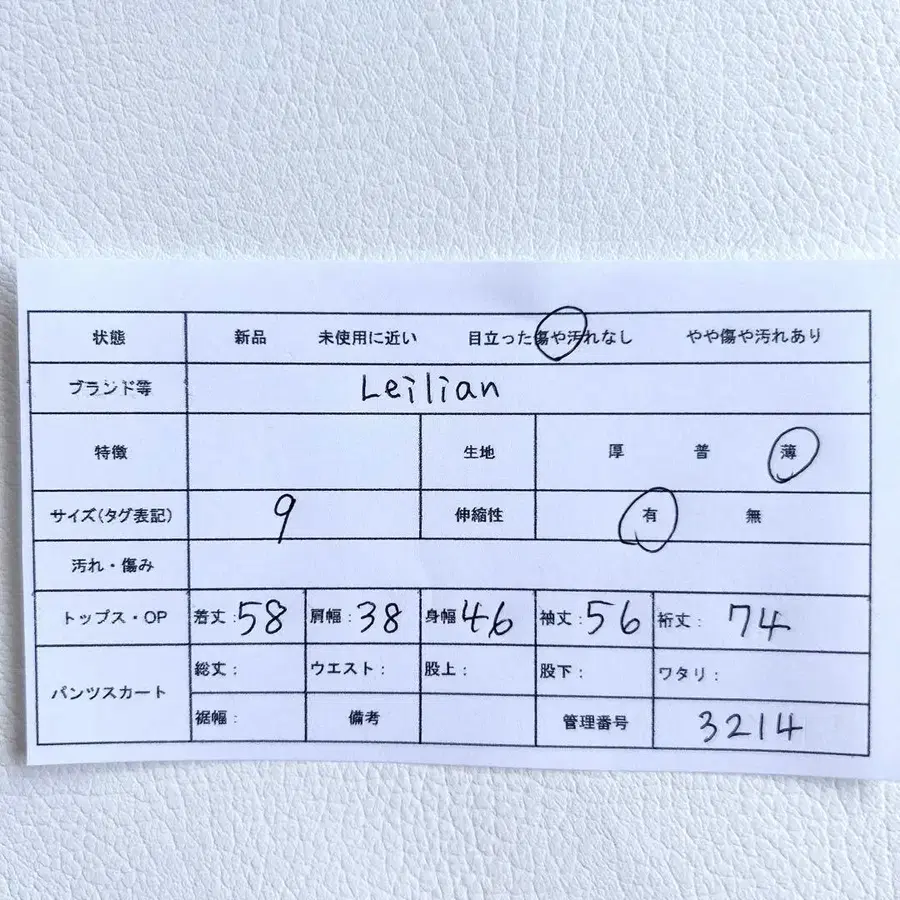 状態 新品 未使用に近い 目立った傷や汚れなし やや傷や汚れあり
ブランド等 Leilian
特徴 生地 厚 普 薄
サイズ(タグ表記) 9 伸縮性 有 無
汚れ・傷み
トップス・OP 着丈:58 肩幅:38 身幅:46 袖丈:56 裄丈:74
パンツスカート 総丈: ウエスト: 股上: 股下: ワタリ:
裾幅: 備考 管理番号 3214